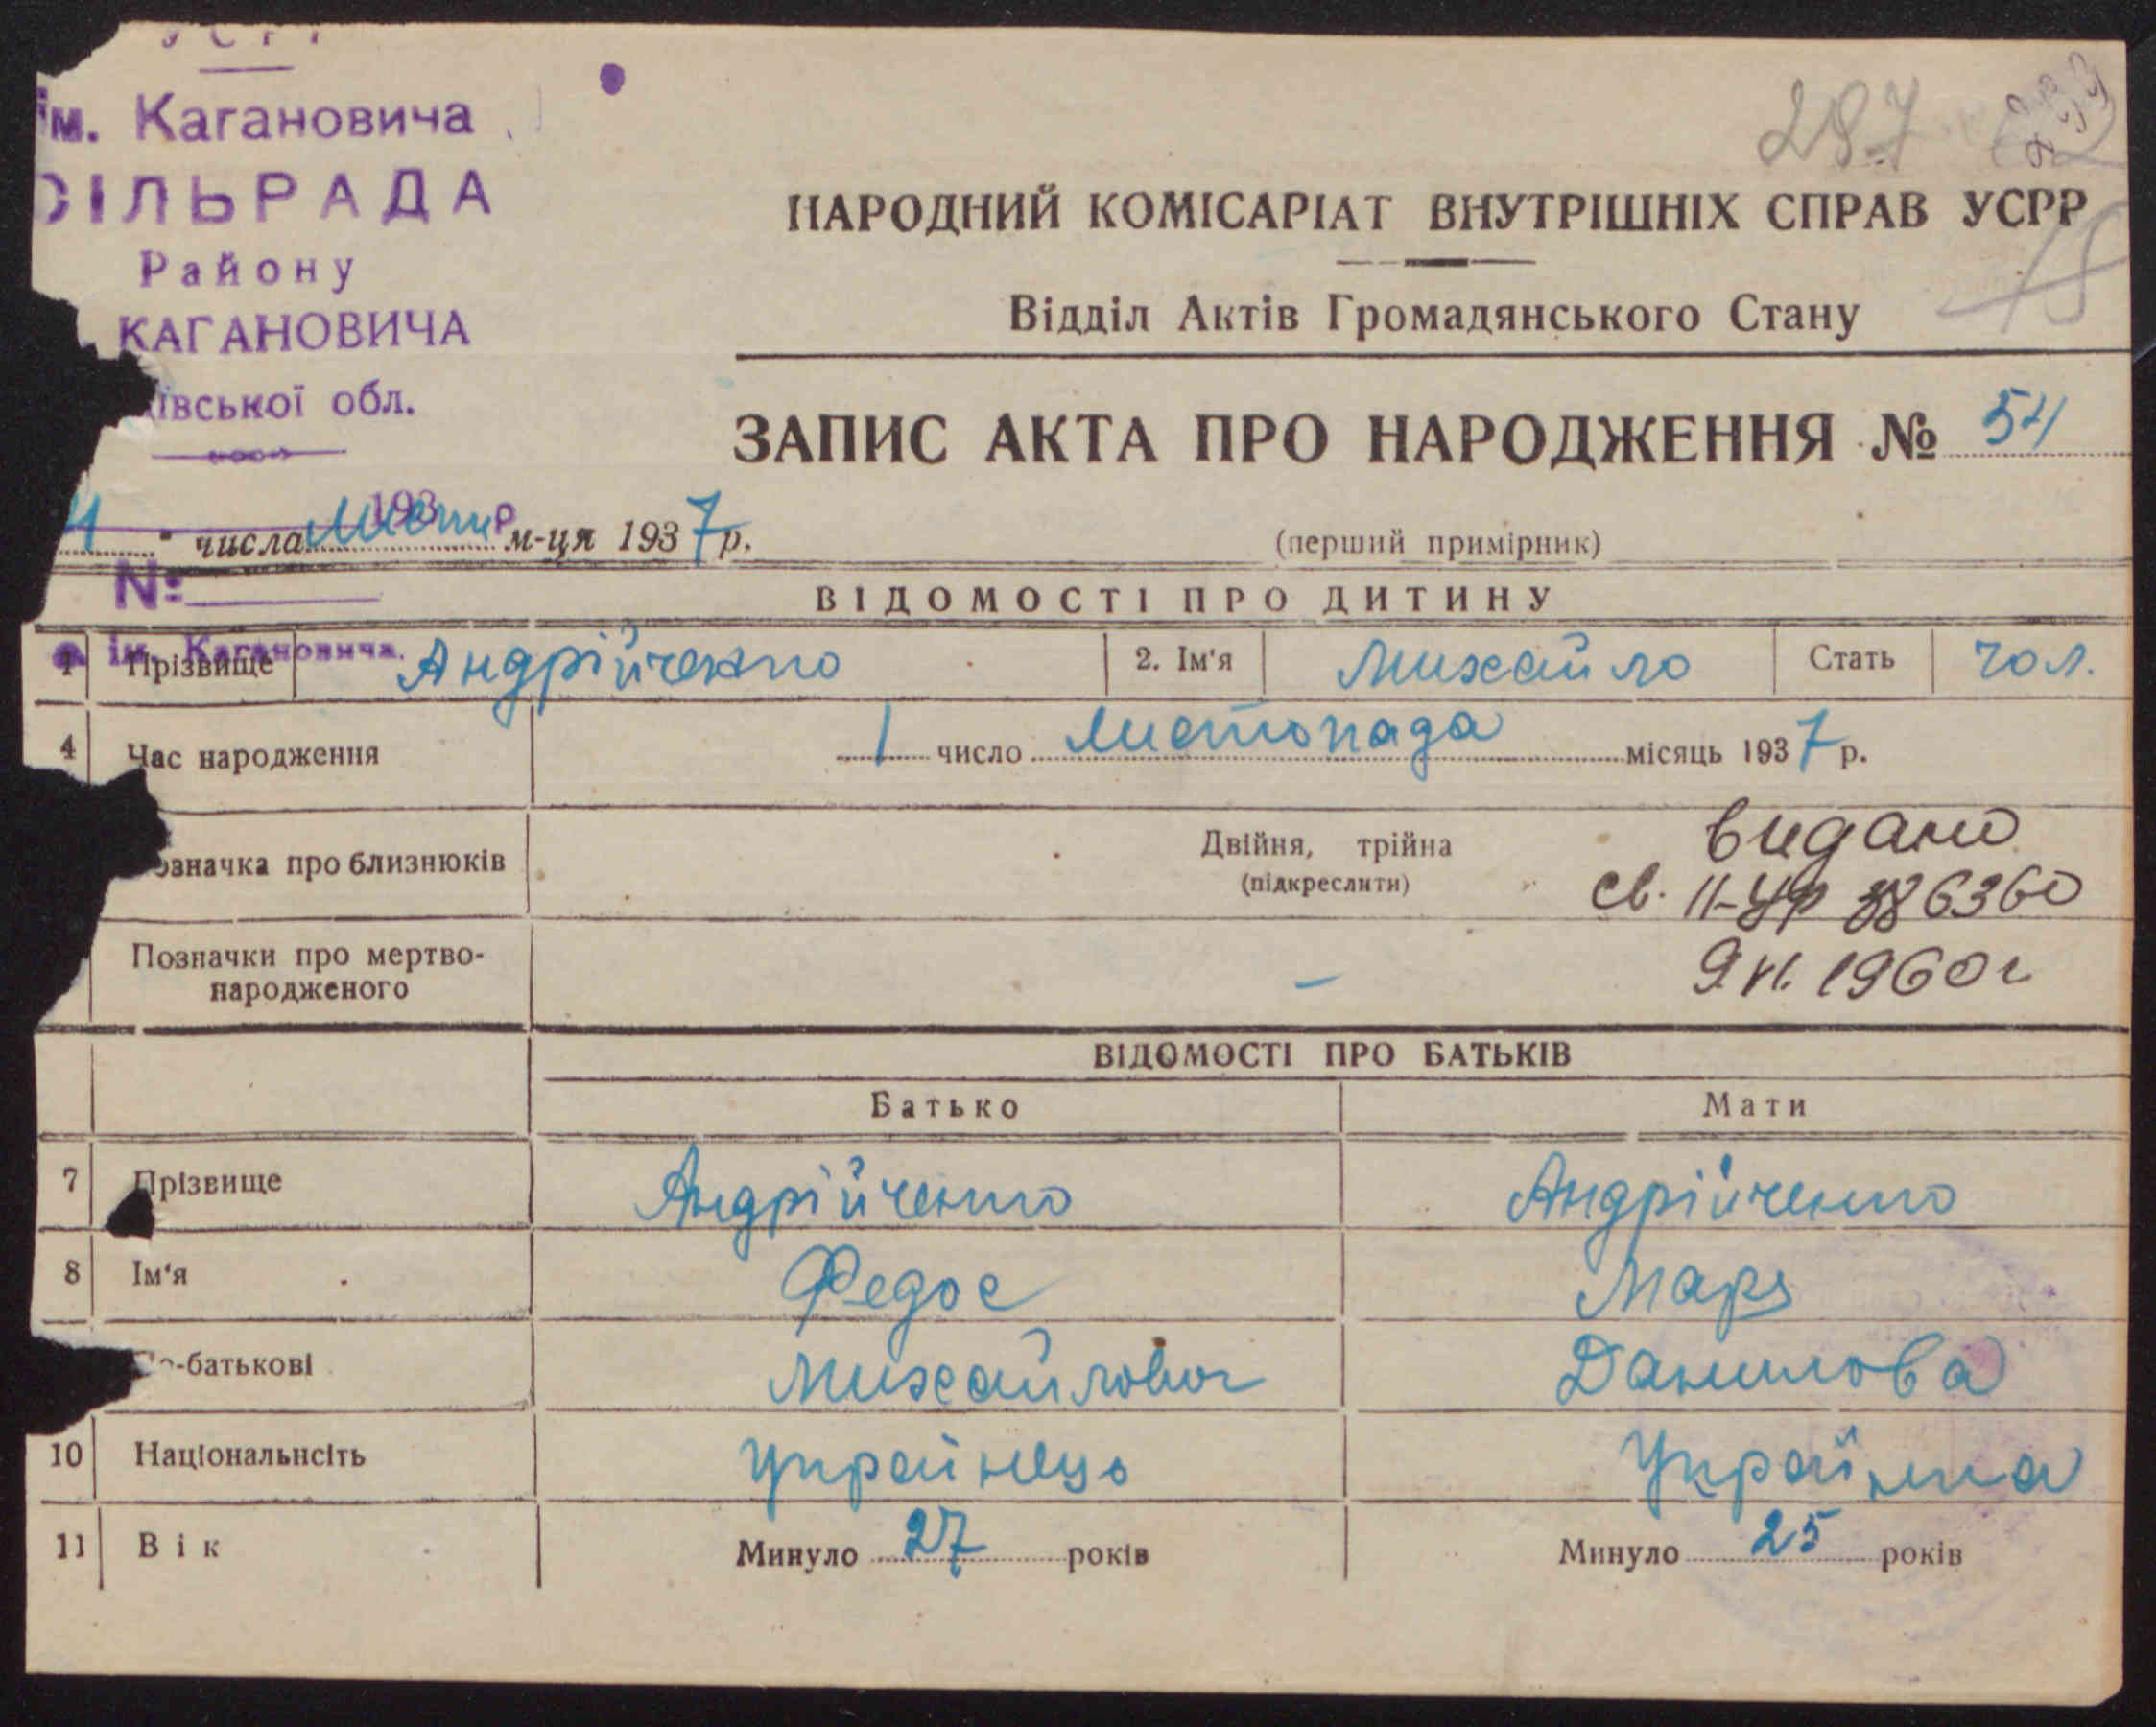 УСРР
ім. Кагановича
СІЛЬРАДА
Району
КАГАНОВИЧА
ївської обл.
193 р.
№
ім. Кагановича.
287
НАРОДНИЙ КОМІСАРІАТ ВНУТРІШНІХ СПРАВ УСРР
Відділ Актів Громадянського Стану
ЗАПИС АКТА ПРО НАРОДЖЕННЯ № 54
числа Лист м-ця 1937 р.
(перший примірник)
ВІДОМОСТІ ПРО ДИТИНУ
1 Прізвище Андрійченко 2. Ім'я Михайло Стать чол.
4 Час народження 1 число Листопада місяць 1937 р.
означка про близнюків Двійня, трійна
(підкреслити)
видано
св. II-УР 386360
9.VI.1960г
Позначки про мертво-
народженого –
ВІДОМОСТІ ПРО БАТЬКІВ
Батько Мати
7 Прізвище Андрійченко Андрійченко
8 Ім'я Федос Маря
по-батькові Михайлович Данилова
10 Національнсіть Українець Українка
11 Вік Минуло 27 років Минуло 25 років